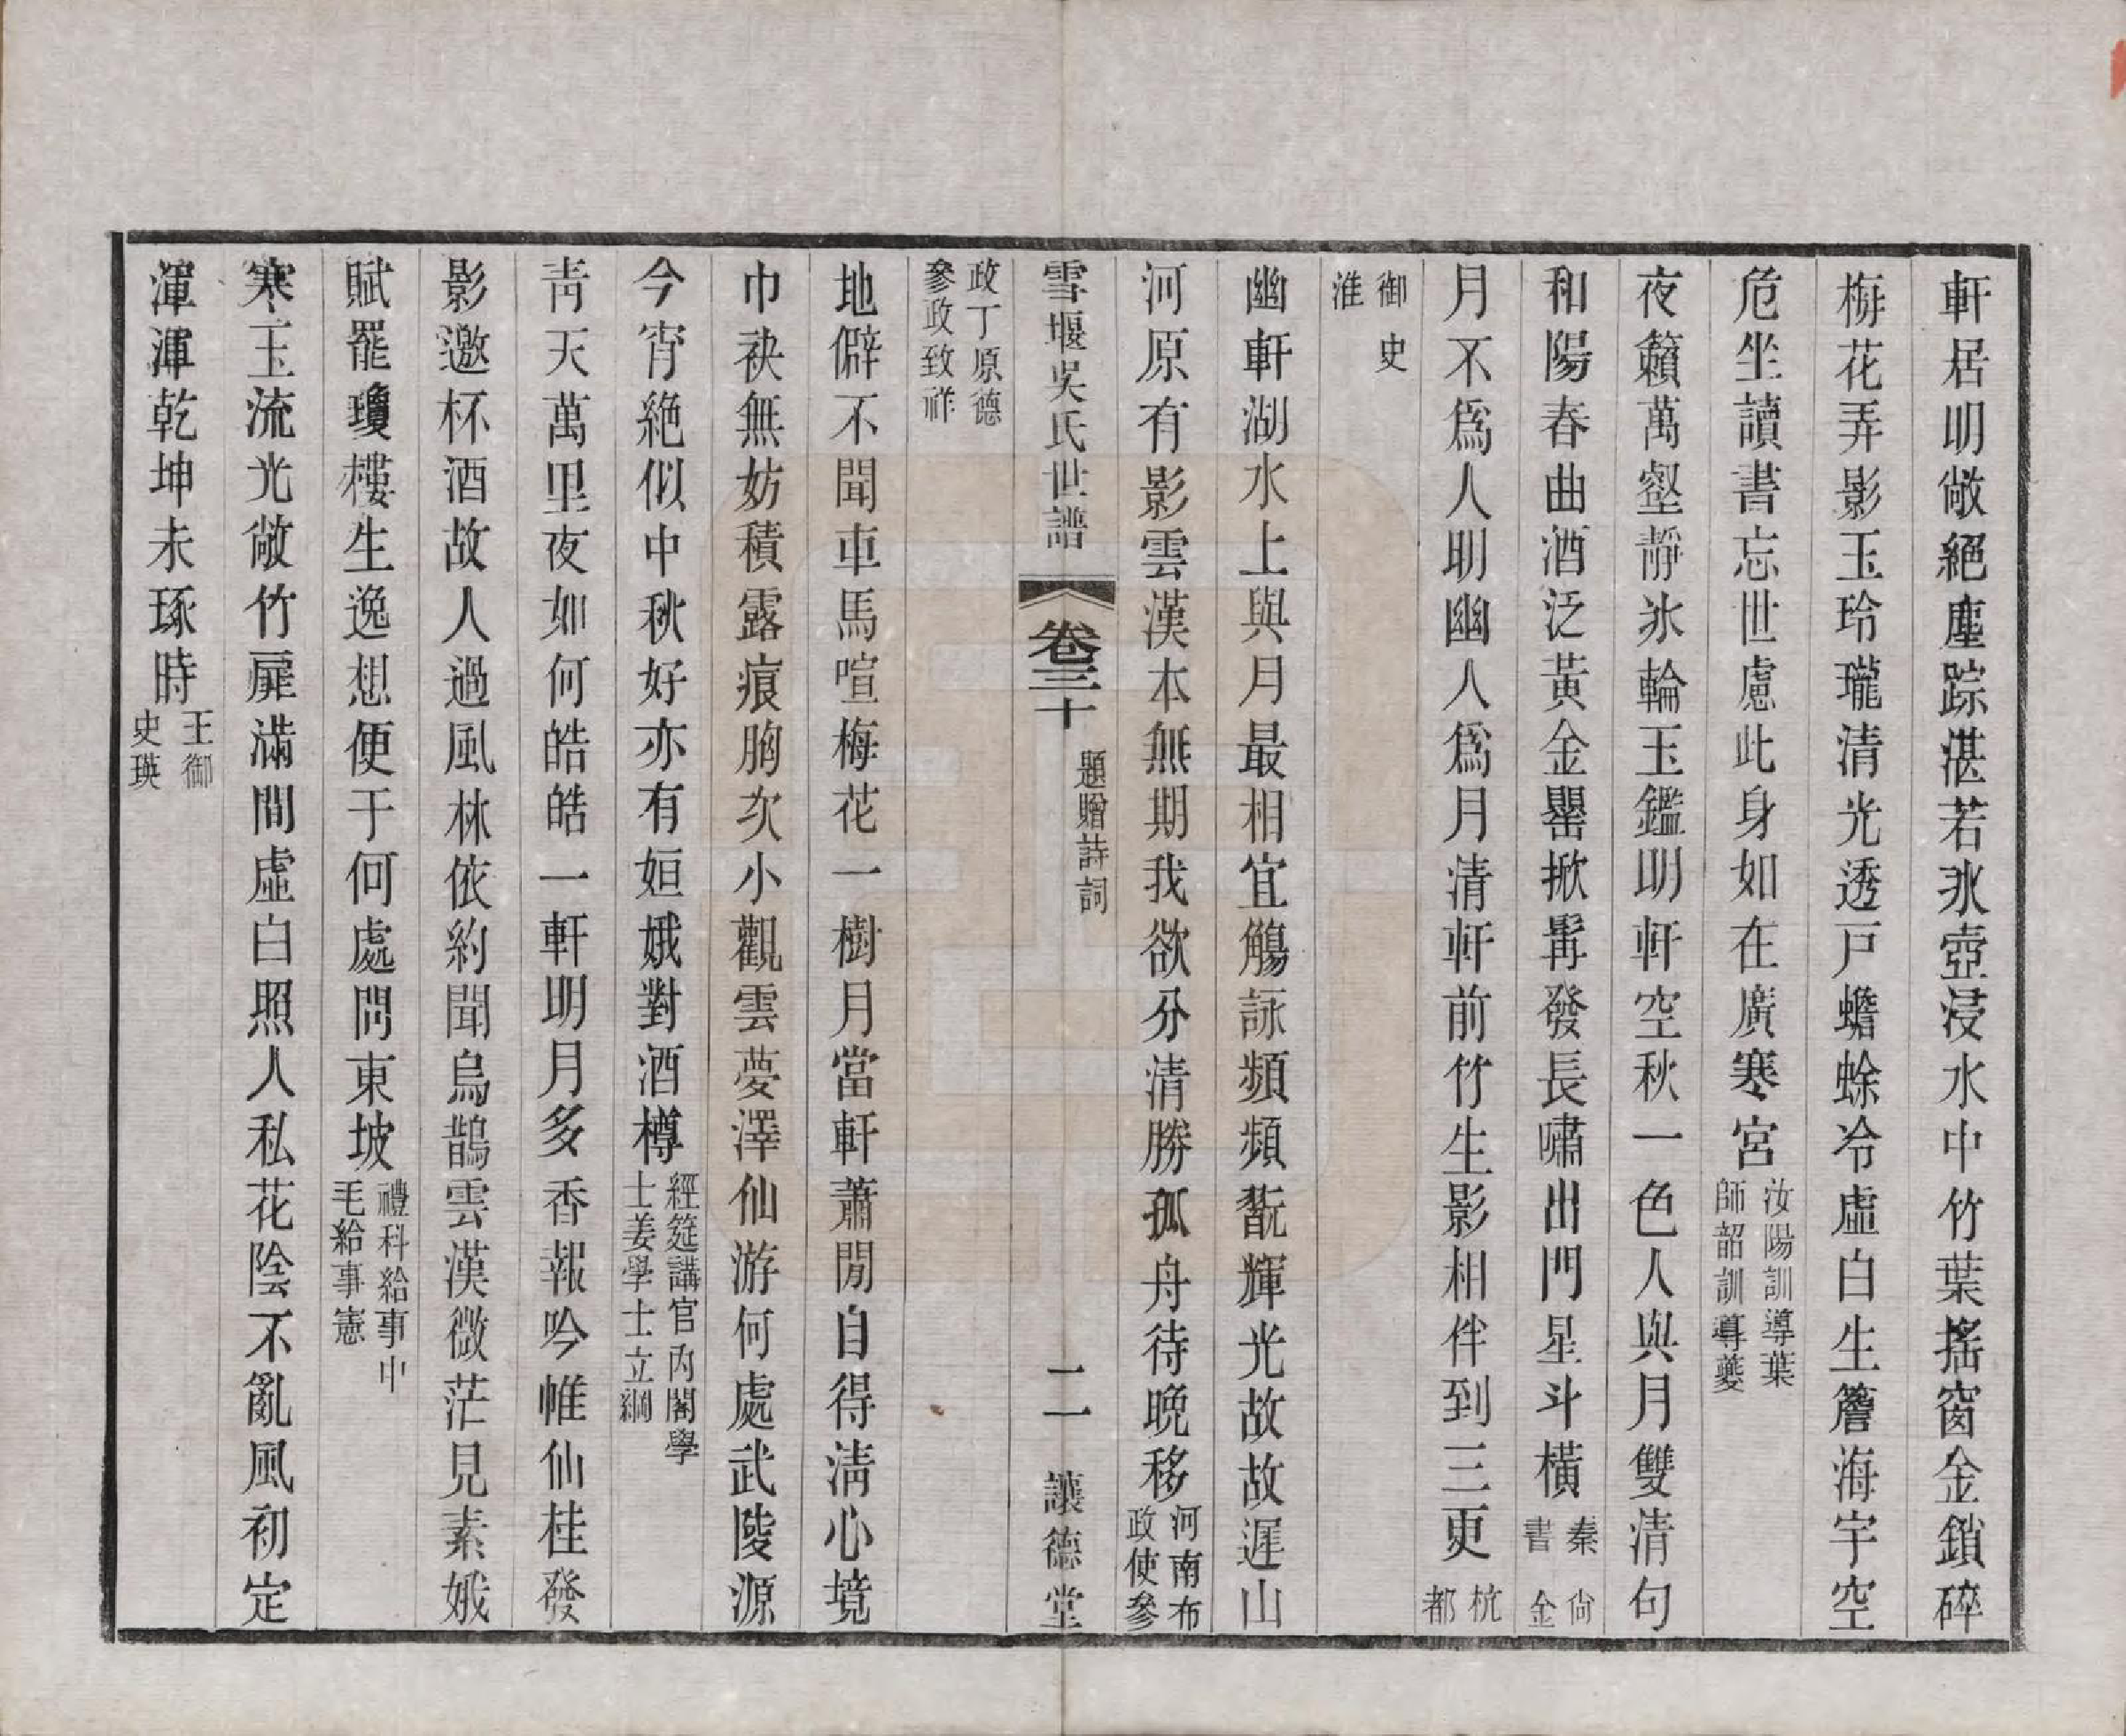 軒居明敞絕塵踪湛若氷壺浸水中竹葉搖窗金鎖碎
梅花弄影玉玲瓏清光透戶蟾蜍冷虛白生簷海宇空
危坐讀書忘世慮此身如在廣寒宮汝陽訓導葉師韶訓導夔
夜籟萬壑靜氷輪玉鑑明軒空秋一色人與月雙清句
和陽春曲酒泛黃金罍掀髯發長嘯出門星斗橫秦尙書金
月不爲人明幽人爲月清軒前竹生影相伴到三更杭都
御史淮
幽軒湖水上與月最相宜觴詠頻頻翫輝光故故遲山
河原有影雲漢本無期我欲分清勝孤舟待晚移河南布政使參
雪堰吳氏世譜 卷三十 題贈詩詞 二一 讓德堂
政丁原德參政致祥
地僻不聞車馬喧梅花一樹月當軒蕭閒自得淸心境
巾袂無妨積露痕胸次小觀雲夢澤仙游何處武陵源
今宵絕似中秋好亦有姮娥對酒樽經筵講官內閣學士姜學士立綱
靑天萬里夜如何皓皓一軒明月多香報吟帷仙桂發
影邀杯酒故人過風林依約聞烏鵲雲漢微茫見素娥
賦罷瓊樓生逸想便于何處問東坡禮科給事中毛給事憲
寒玉流光敞竹扉滿間虛白照人私花陰不亂風初定
渾渾乾坤未琢時王御史瑛